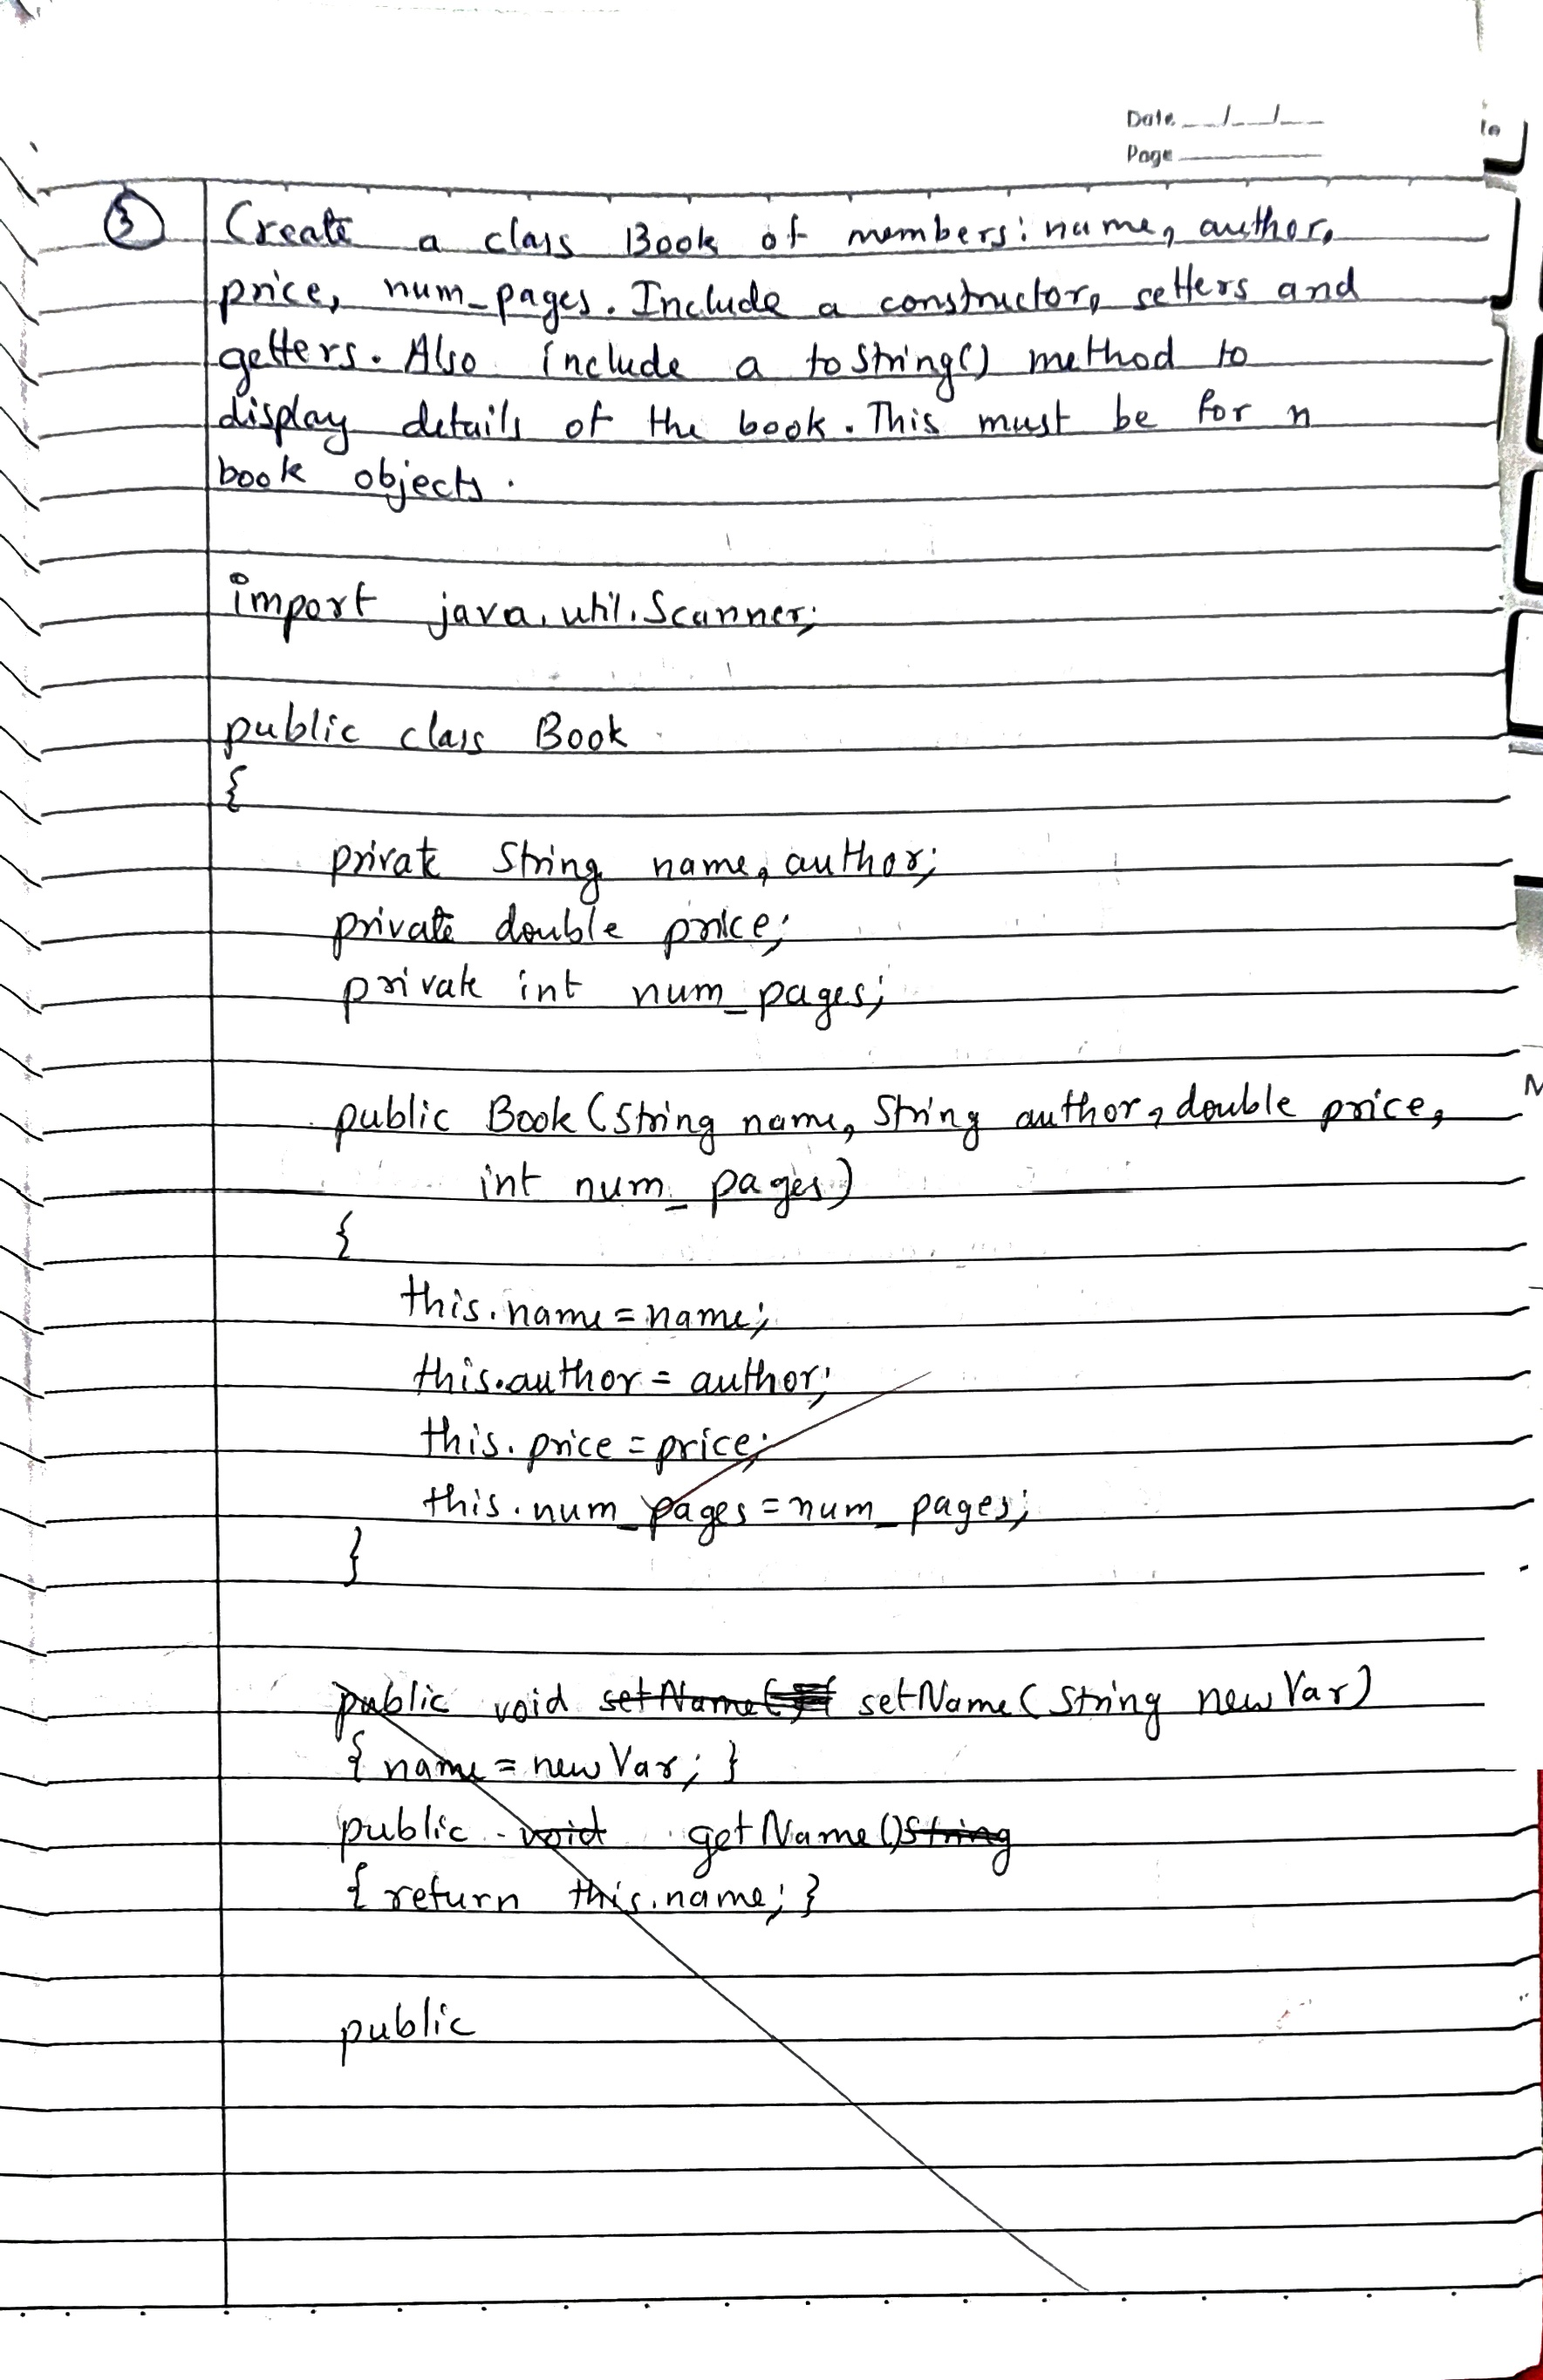 Date __/__/__
Page
3 Create a class Book of members: name, author,
price, num_pages. Include a constructor, setters and
getters. Also include a toString() method to
display details of the book. This must be for n
book objects.
import java.util.Scanner;
public class Book
{
private String name, author;
private double price;
private int num_pages;
public Book (String name, String author, double price,
int num_pages)
{
this.name = name;
this.author = author;
this.price = price;
this.num_pages = num_pages;
}
public void setName( setName (String newVar)
{ name = newVar; }
public void getName() String
{ return this.name; }
public